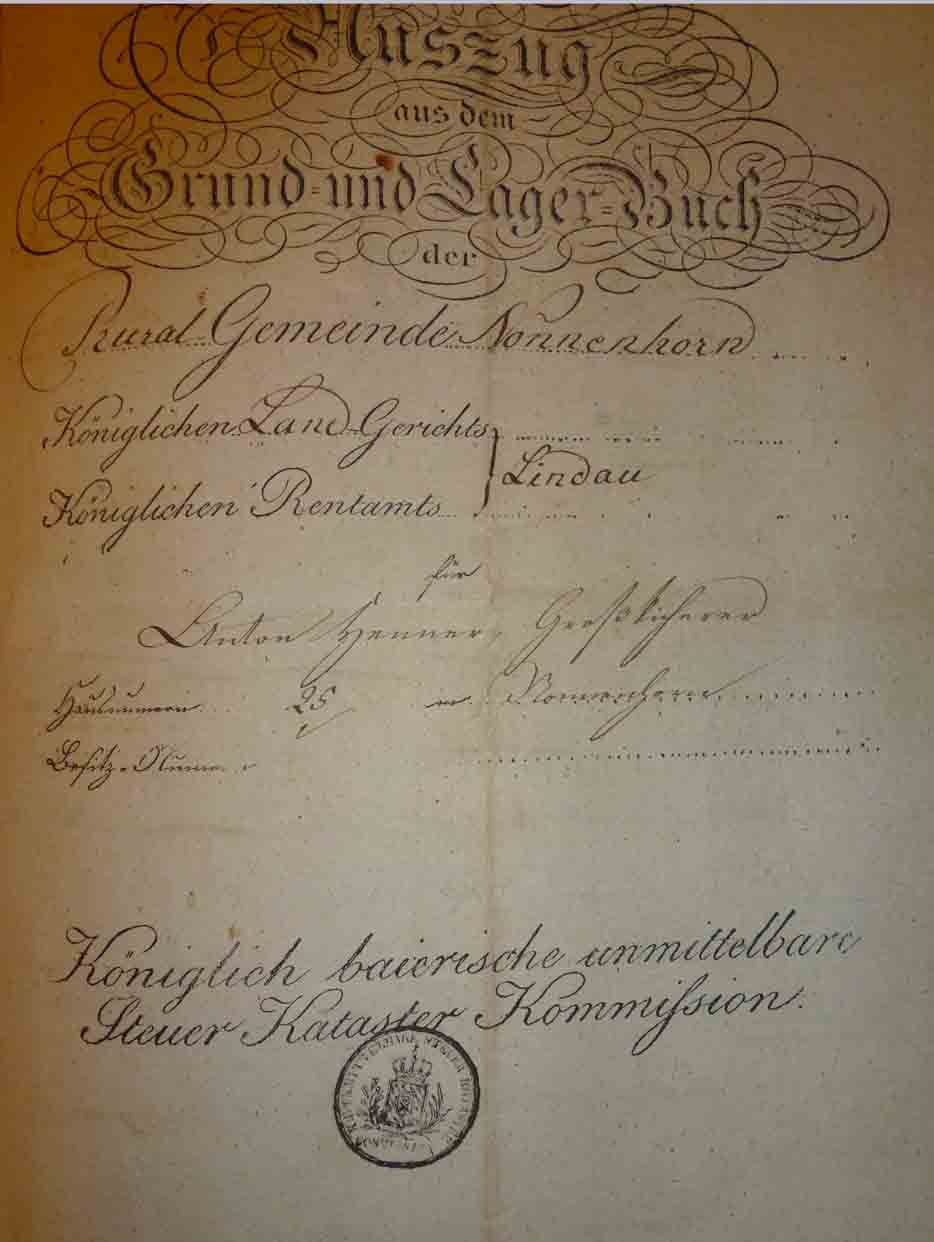 Auszug
aus dem
Grund- und Lager-Buch
der
Rural-Gemeinde Nonnenhorn
Königlichen Land-Gerichts
Lindau
Königlichen Rentamts
für
Anton Henner, Großkicherer
Hausnummer 25 in Nonnenhorn
Besitz-Nummer
Königlich baierische unmittelbare
Steuer Kataster Kommißion.